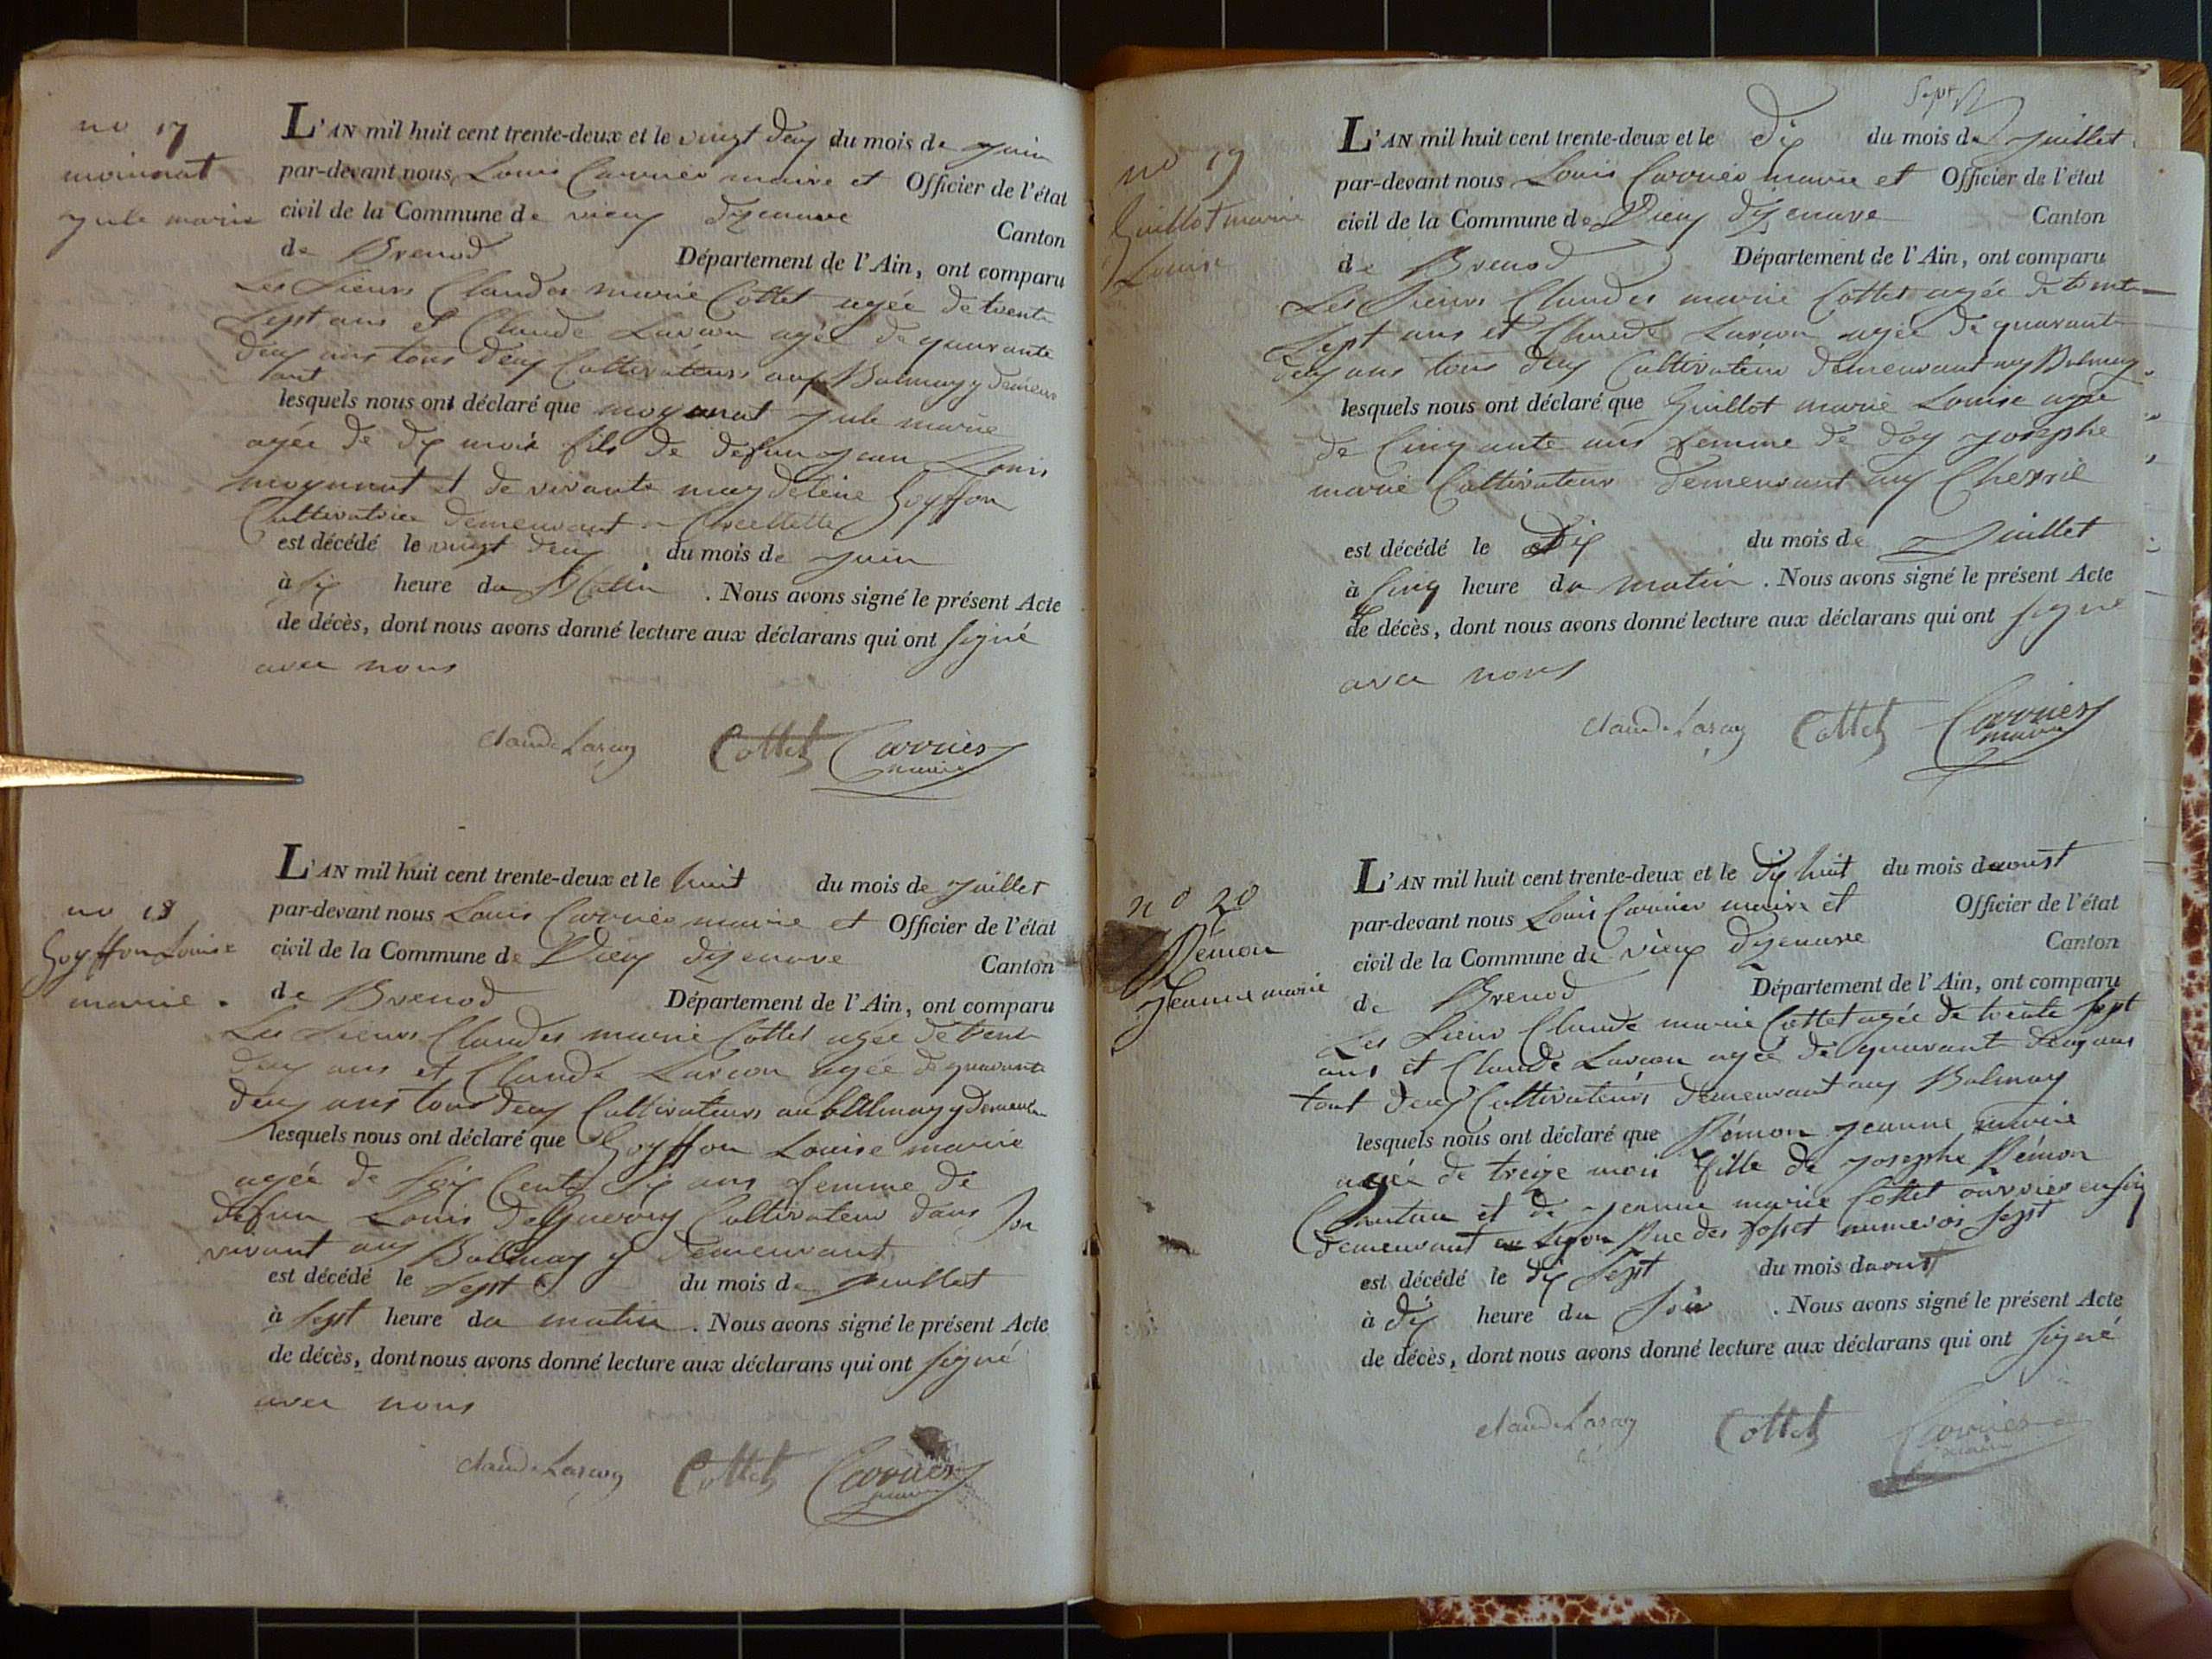 no 17
moinnat
jule marie
L'AN mil huit cent trente-deux et le vingt deux du mois de juin
par-devant nous Louis Carrier maire et Officier de l'état
civil de la Commune de vieux dizenave Canton
de Brenod Département de l'Ain, ont comparu
Les Sieurs Claudes marie Cottet agée de trente
Sept ans et Claude Laracon agée de quarante
deux ans tous deux Cultivateurs aux Balmay y demeur
ant
lesquels nous ont déclaré que moyonnat jule marie
agée de dix mois fils de defun jean Louis
moyonnat et de vivante magdeleine Goyffon
Cultivatrice demeurant a
est décédé le vingt deux du mois de juin
à six heure du Matin . Nous avons signé le présent Acte
de décès, dont nous avons donné lecture aux déclarans qui ont signé
avec nous
claude Laracon Cottet Carrier
maire
no 18
Goyffon Louise
marie .
L'AN mil huit cent trente-deux et le huit du mois de juillet
par-devant nous Louis Carrier maire et Officier de l'état
civil de la Commune de Vieux dizenave Canton
de Brenod Département de l'Ain, ont comparu
Les Sieurs Claudes marie Cottet agée de trente
deux ans et Claude Laracon agée de quarante
deux ans tous deux Cultivateurs au Balmay y demeuran
lesquels nous ont déclaré que Goyffon Louise marie
agée de ans femme de
defun Louis Cultivateur dans Son
vivant aux Balmay y demeurant
est décédé le Sept du mois de juillet
à Sept heure du matin . Nous avons signé le présent Acte
de décès, dont nous avons donné lecture aux déclarans qui ont signé
avec nous
claude Laracon Cottet Carrier
maire
no 19
Guillot marie
Louise
L'AN mil huit cent trente-deux et le dix du mois de juillet
par-devant nous Louis Carrier maire et Officier de l'état
civil de la Commune de Vieux dizenave Canton
de Brenod Département de l'Ain, ont comparu
Les Sieurs Claudes marie Cottet agée de trente
Sept ans et Claude Laracon agée de quarante
deux ans tous deux Cultivateurs demeurant aux Balmay
lesquels nous ont déclaré que Guillot marie Louise agée
de Cinquante ans femme de josephe
marie Cultivateur demeurant aux
est décédé le Dix du mois de Juillet
à Cinq heure du matin . Nous avons signé le présent Acte
de décès, dont nous avons donné lecture aux déclarans qui ont signé
avec nous
claude Laracon Cottet Carrier
maire
no 20
Rémon
Jeanne marie
L'AN mil huit cent trente-deux et le dix huit du mois daoust
par-devant nous Louis Carrier maire et Officier de l'état
civil de la Commune de vieux dizenave Canton
de Brenod Département de l'Ain, ont comparu
Les Sieur Claude marie Cottet agée de trente Sept
ans et Claude Laracon agée de quarante deux ans
tout deux Cultivateurs demeurant aux Balmay
lesquels nous ont déclaré que Rémon jeanne marie
agée de treize mois fille de josephe Rémon
et de jeanne marie Cottet ouvrier en
demeurant Lyon Rue des fosset numerois Sept
est décédé le dix Sept du mois daoust
à dix heure du soir . Nous avons signé le présent Acte
de décès, dont nous avons donné lecture aux déclarans qui ont signé
claude Laracon Cottet Carrier
maire